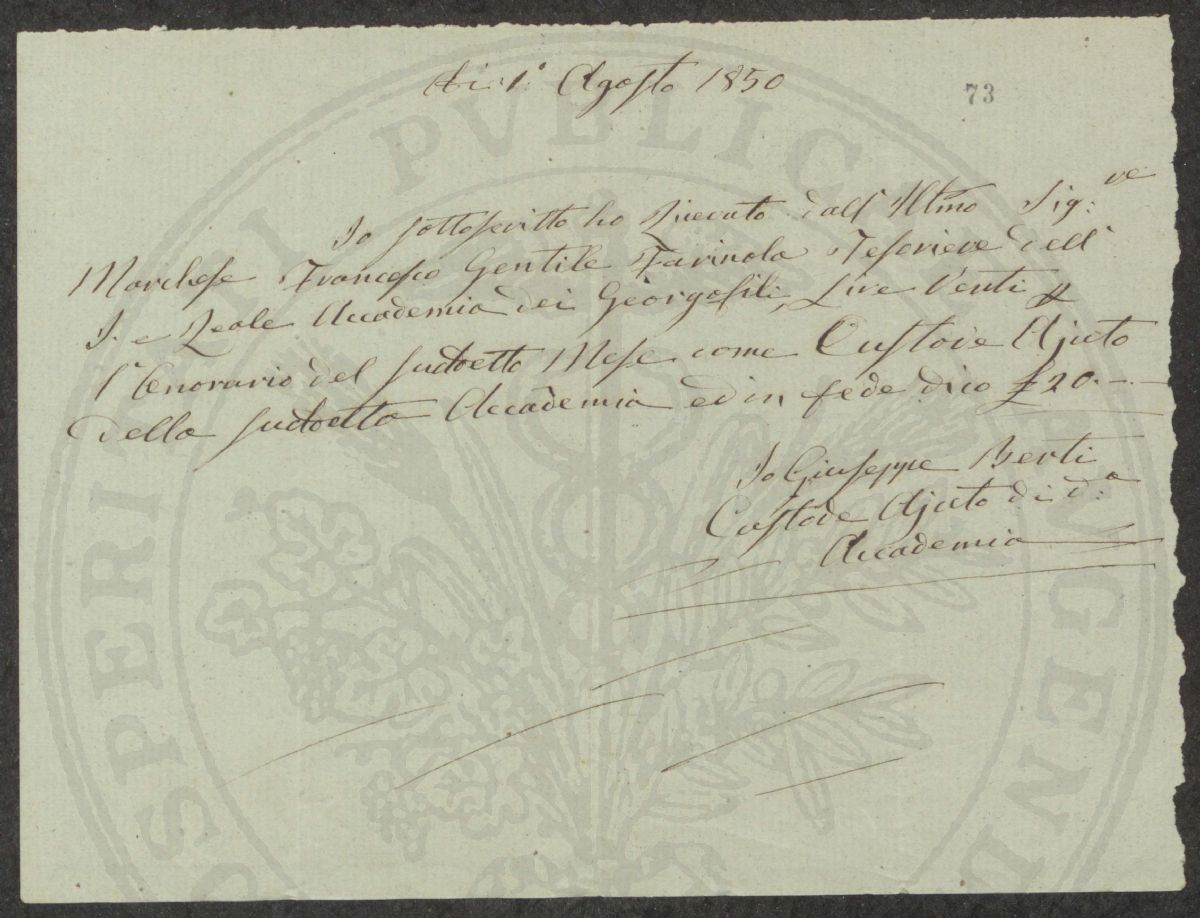 Adi 1° Agosto 1850
73
Io sottoscritto ho Ricevuto dall' Illmo Sig:re
Marchese Francesco Gentile Farinola Tesoriere dell'
I. e Reale Accademia dei Georgofili, Lire Venti p
l'Onorario del suddetto Mese come Custode Ajuto
della suddetta Accademia ed in fede dico £ 20.—
Io Giuseppe Berti
Custode Ajuto di d:a
Accademia
PROSPERITATI PVBLICAE AVGENDAE